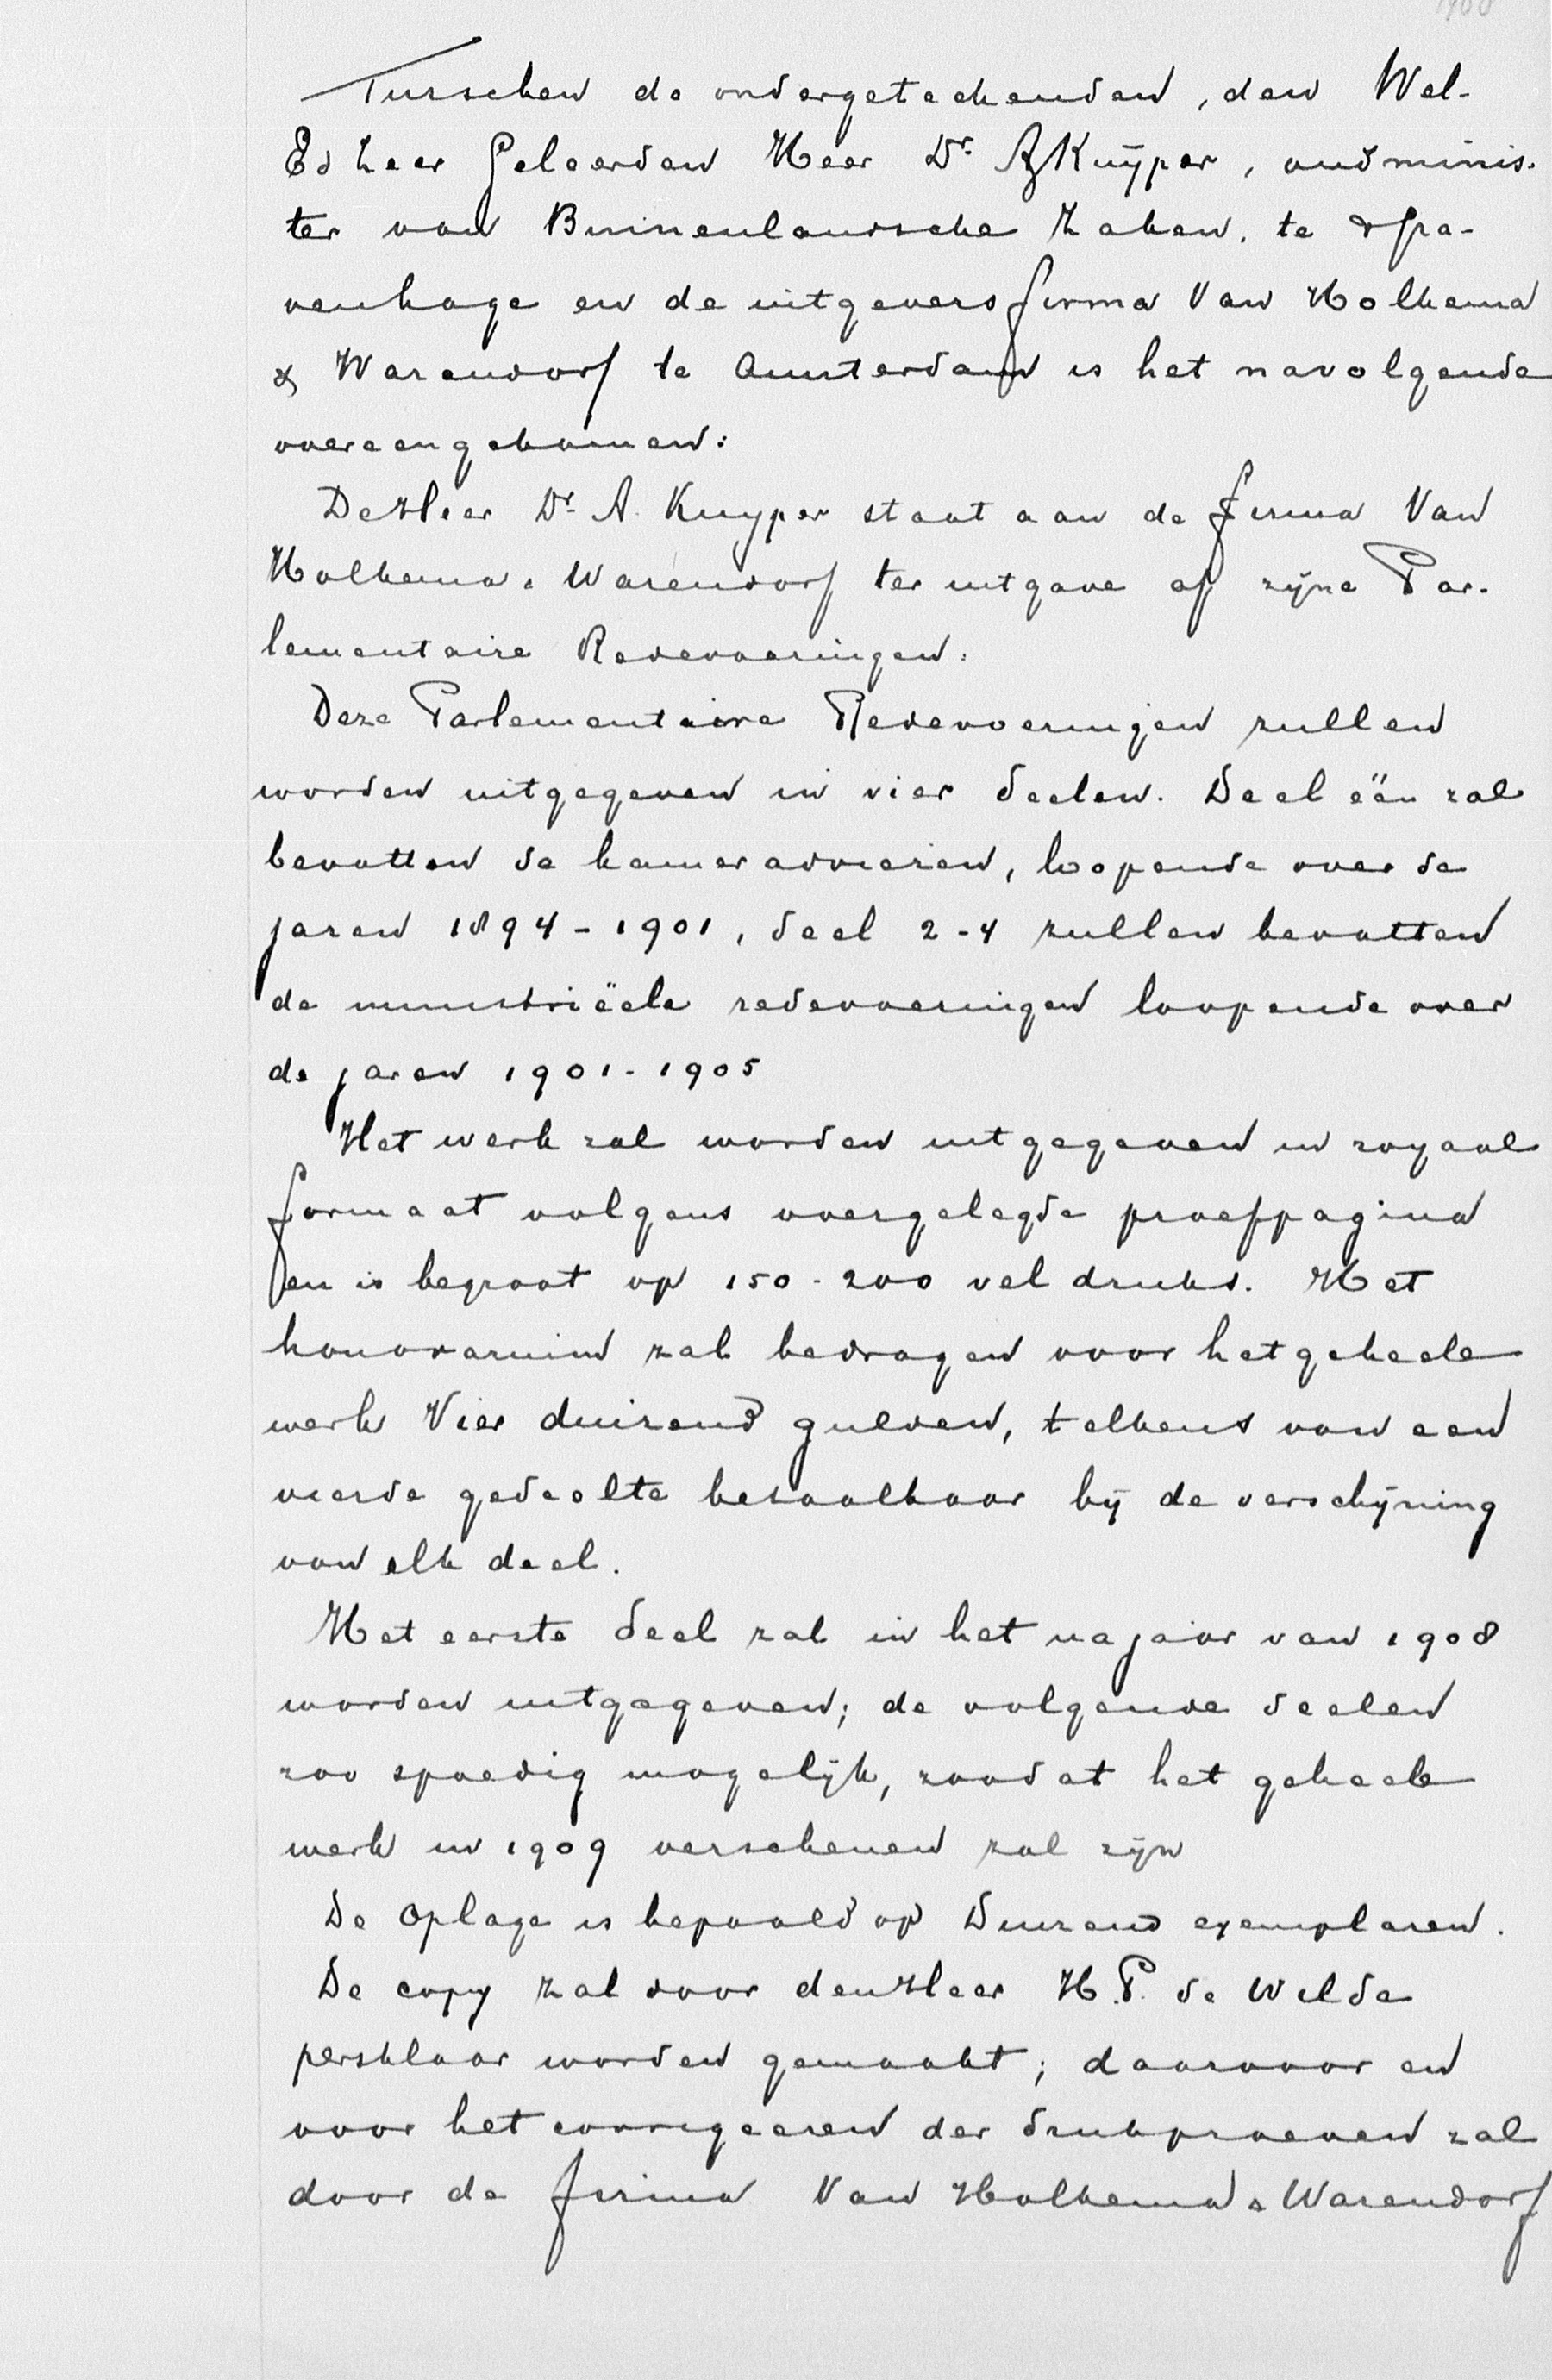 1908
Tusschen de ondergeteekenden, den Wel-
Edheer Geleerden Heer Dr. A Kuÿper, oudminis-
ter van Binnenlandsche Zaken, te 's Gra-
venhage en de uitgeversfirma Van Holkema
& Warendorf te Amsterdam is het navolgende
overeengekomen:
De Heer Dr. A. Kuyper staat aan de firma Van
Holkema & Warendorf ter uitgave af zijne Par-
lementaire Redevoeringen.
Deze Parlementaire Redevoeringen zullen
worden uitgegeven in vier deelen. Deel één zal
bevatten de kameradviezen, loopende over de
jaren 1894-1901, deel 2-4 zullen bevatten
de ministriëele redevoeringen loopende over
de jaren 1901-1905
Het werk zal worden uitgegeven in royaal
formaat volgens overgelegde proefpagina
en is begroot op 150-200 vel druks. Het
honorarium zal bedragen voor het geheele
werk Vier duizend gulden, telkens van een
vierde gedeelte betaalbaar bij de verschijning
van elk deel.
Het eerste deel zal in het najaar van 1908
worden uitgegeven; de volgende deelen
zoo spoedig mogelijk, zoodat het geheele
werk in 1909 verschenen zal zijn
De oplage is bepaald op Duizend exemplaren.
De copy zal door den Heer H.P. de Wilde
persklaar worden gemaakt; daarvoor en
voor het corrigeeren der drukproeven zal
door de firma Van Holkema & Warendorf